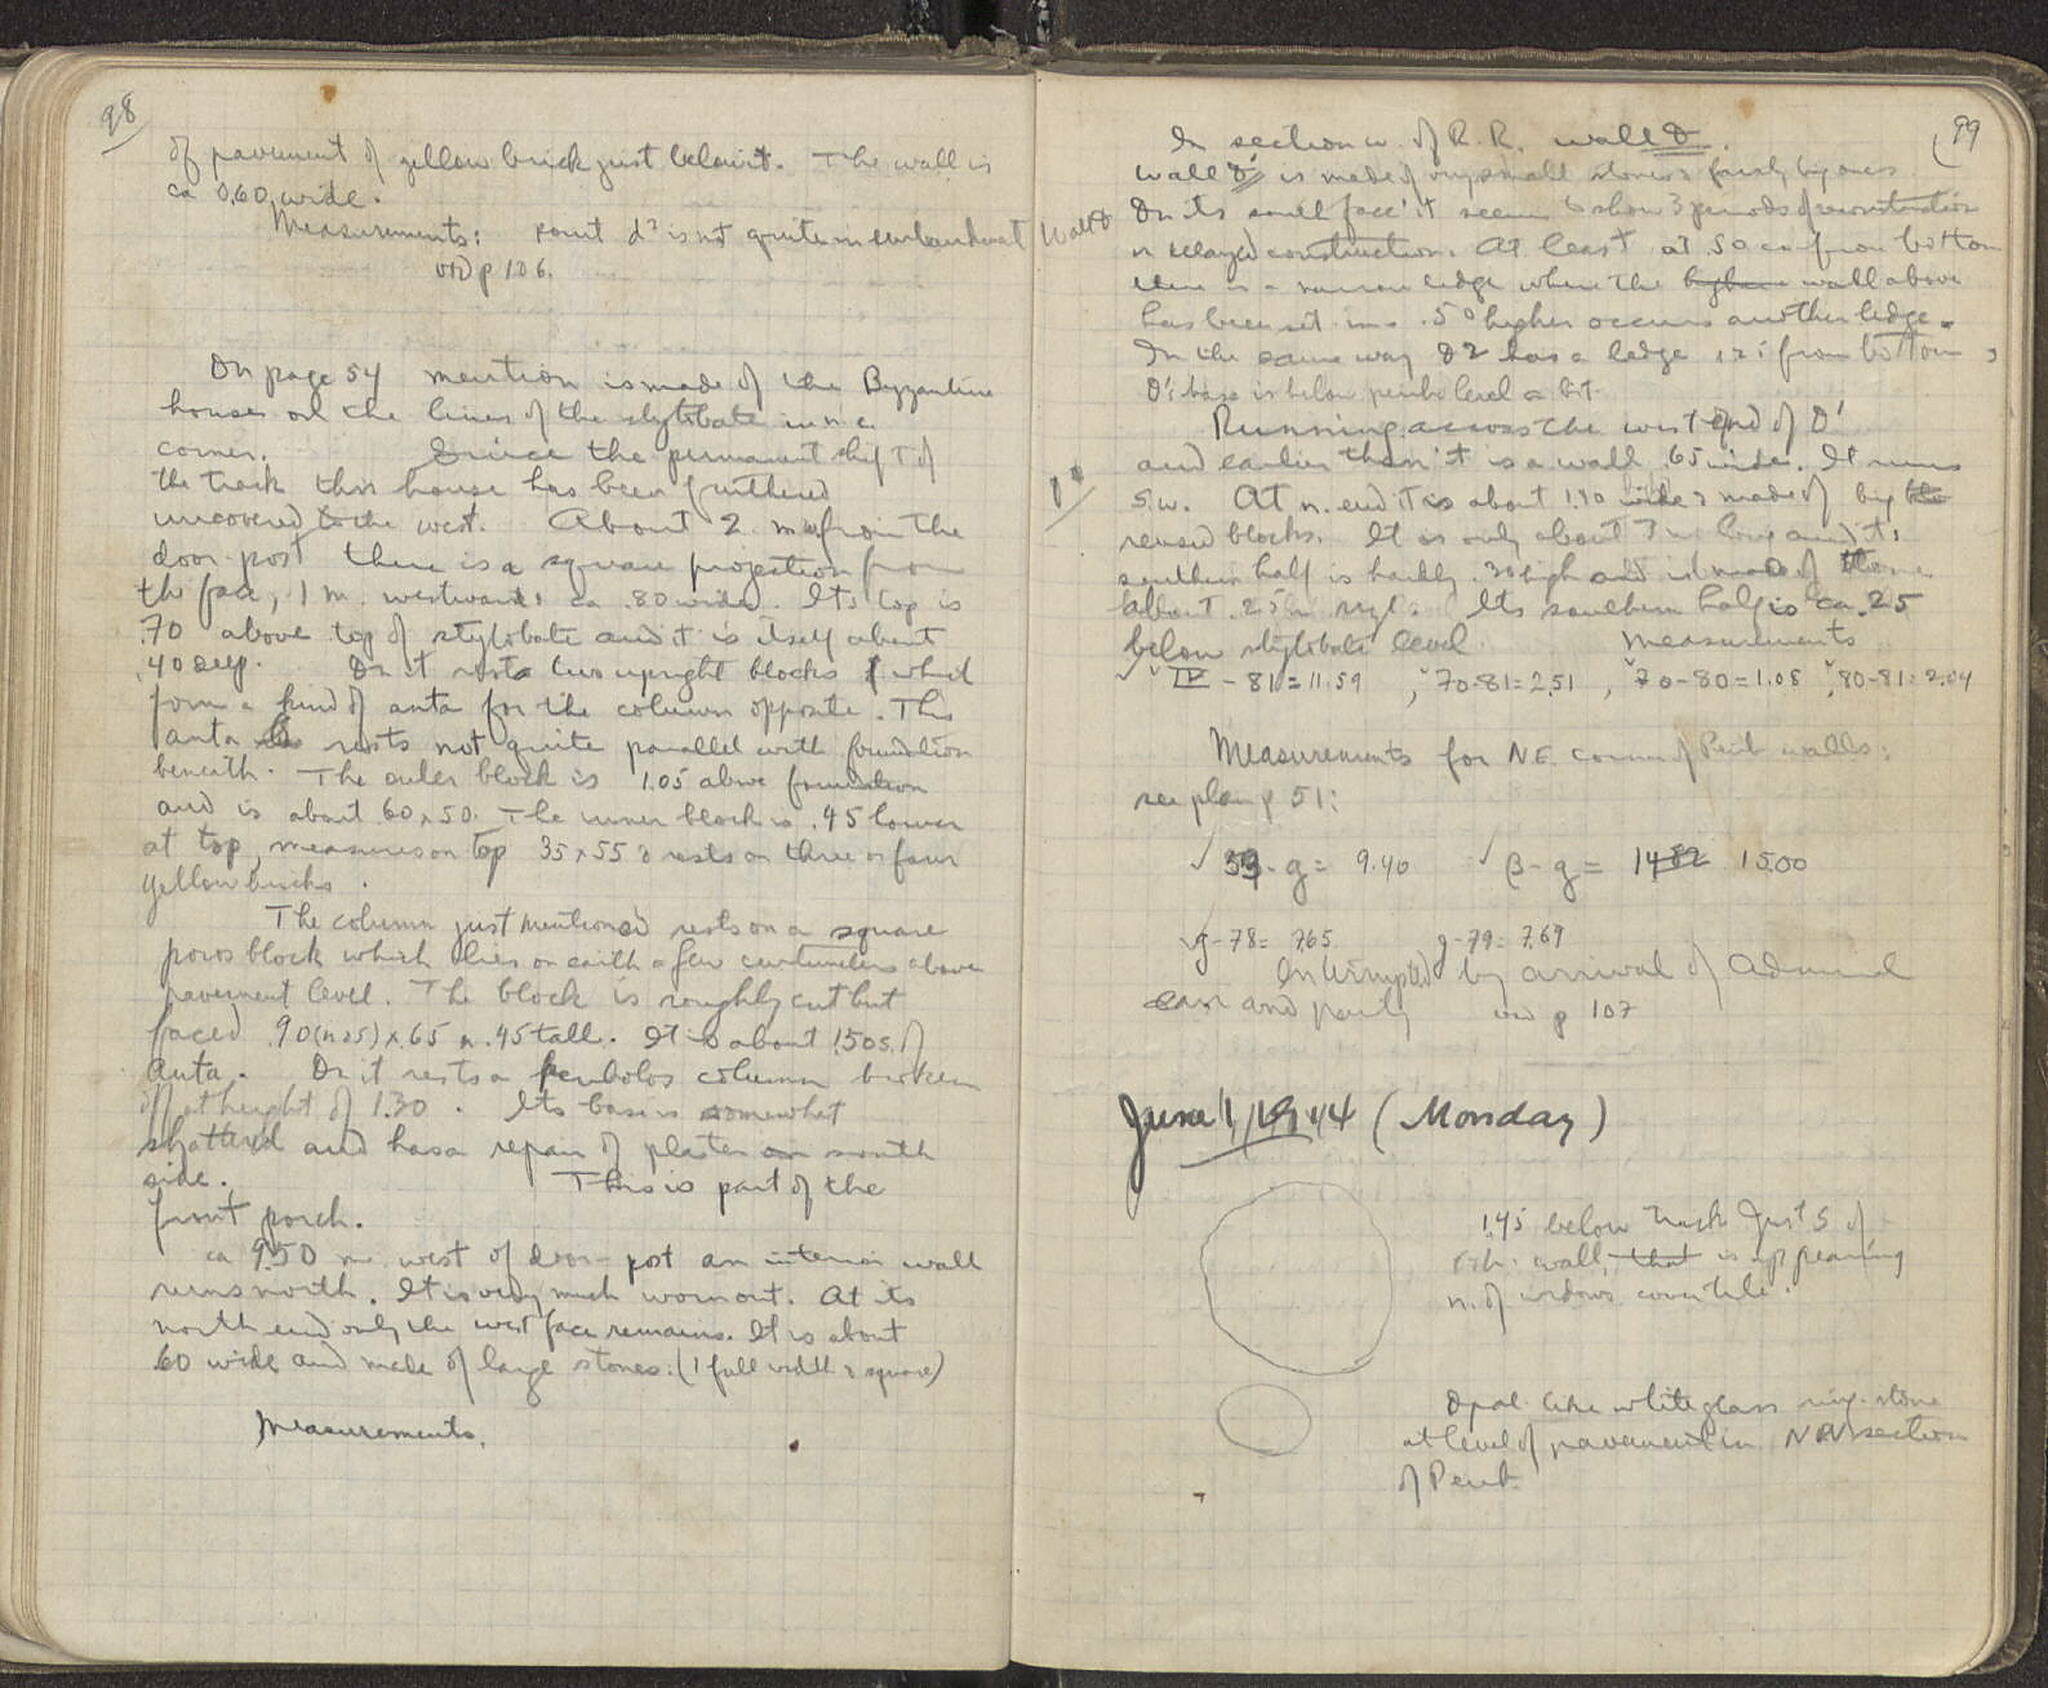 98
of pavement of yellow brick just below it. The wall is
ca 0.60 wide.
Measurements: point d² is not quite in
vid p 106.
On page 54 mention is made of the Byzantine
house on the lines of the stylobate in n.e.
corner. Since the permanent shift of
the track this house has been further
uncovered to the west. About 2 m from the
door-post there is a square projection from
the face, 1 m. westward ca .80 wide. Its top is
.70 above top of stylobate and it is itself about
.40 deep. On it rests two upright blocks which
form a kind of anta for the column opposite. This
anta rests not quite parallel with foundation
beneath. The outer block is 1.05 above foundation
and is about .60 x 50. The inner block is .45 lower
at top, measures on top 35 x 55 & rests on three or four
yellow bricks.
The column just mentioned rests on a square
poros block which lies on earth a few centimeters above
pavement level. The block is roughly cut but
faced .90 (n & s) x .65 x .45 tall. It is about 1.50 s. of
Anta. On it rests a Peribolos column broken
off at height of 1.30. Its base is somewhat
shattered and has a repair of plaster on south
side. This is part of the
front porch.
ca 9.50 m west of door-post an interior wall
runs north. It is very much worn out. At its
north end only the west face remains. It is about
.60 wide and made of large stones. (1 full width & square)
Measurements.
99
In section w. of R.R. wall
wall is made of very small stones & fairly big ones
On its small face it seems to show 3 periods of reconstruction
or delayed construction. At least at .50 ca from bottom
there is a narrow ledge where the higher wall above
has been set in & .50 higher occurs another ledge.
In the same way 2 has a ledge from bottom,
base is below peribo level a bit
Running across the west end of
and earlier than it is a wall .65 wide. It runs
s.w. At n. end it is about 1.10 wide & made of big
reused blocks. It is only about long and its
southern half is hardly .30 high and is made of stones
about .25 Its southern half is ca. 25
below stylobate level. Measurements
IV - 81 = 11.59, 70-81 = 2.51, 70-80 = 1.08, 80-81 = 2.04
Measurements for NE. corner of Perib walls:
see plan p 51:
59 - g = 9.40 β - g = 1482 15.00
g - 78 = 7.65 g - 79 = 7.69
Interrupted by arrival of Admiral
and party vid p 107
June 1, 1914 (Monday)
1.45 below track Just S of
wall, that is appearing
n. of cover tile.
Opal like white glass ring-stone
at level of pavement in NW section
of Perib.